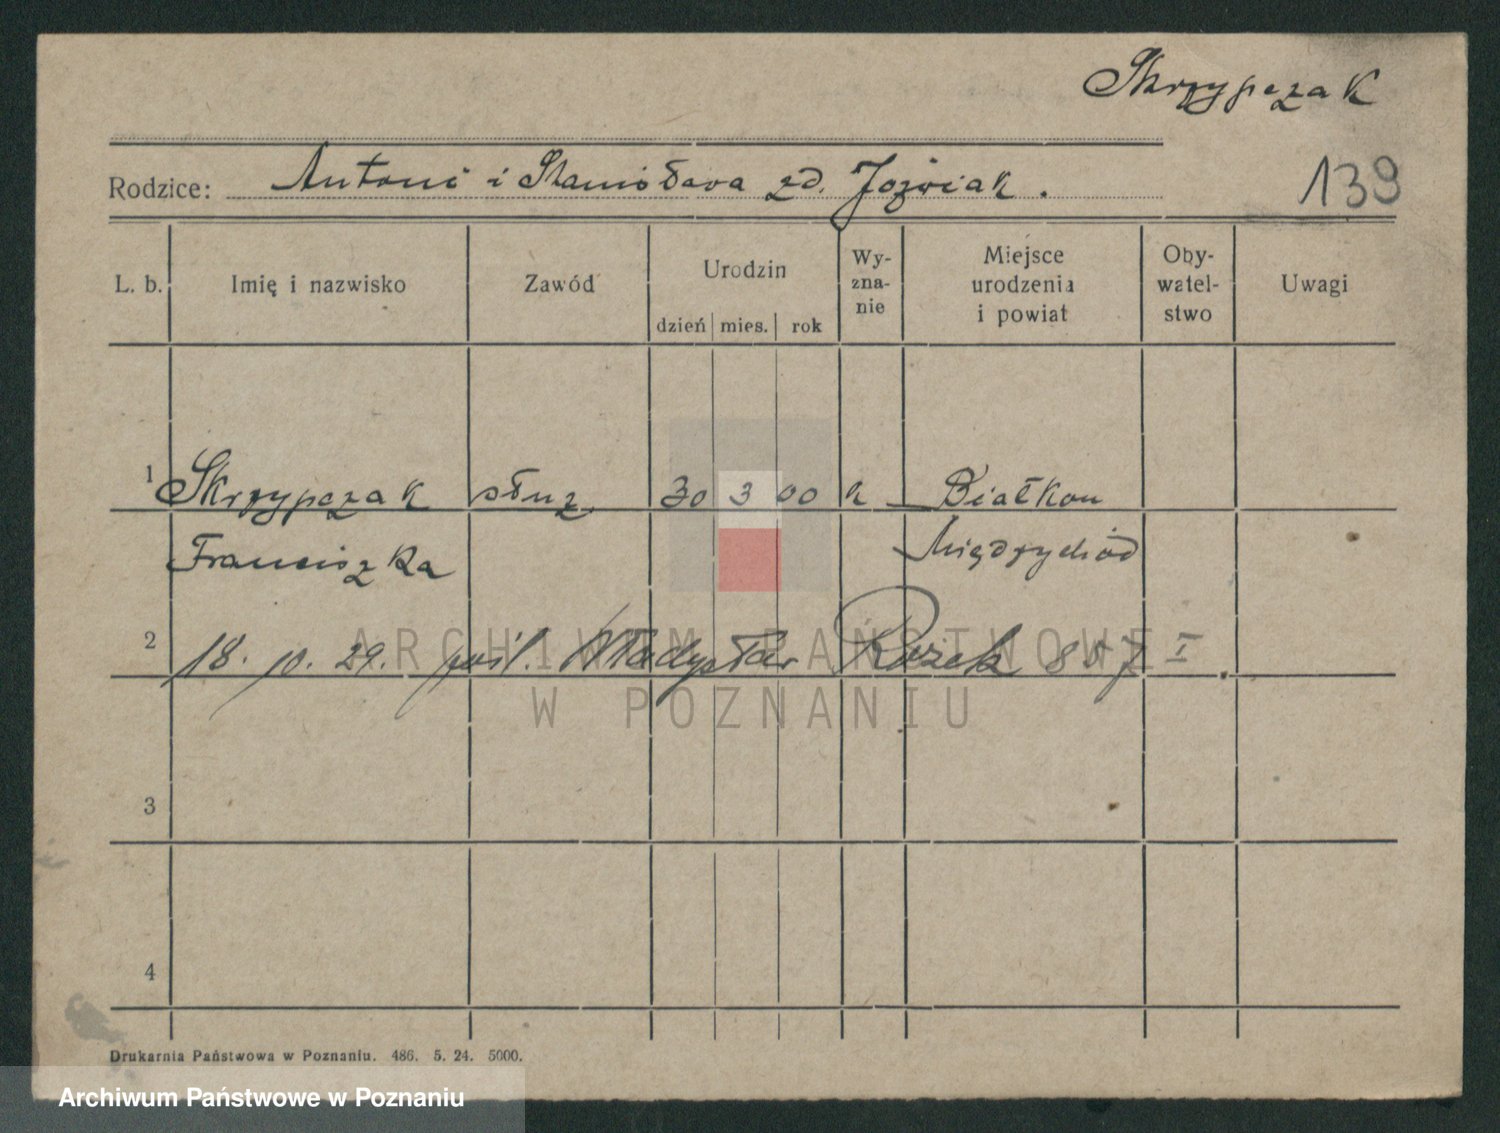 Skrzypczak
Rodzice: Antoni i Stanisława zd. Joźwiak.
139
L. b. Imię i nazwisko Zawód Urodzin dzień mies. rok Wy-zna-nie Miejsce urodzenia i powiat Oby-watel-stwo Uwagi
1 Skrzypczak służ. 30 3 00 k Białkou
Franciszka Międzychód
2 18. 10. 29. pośl. Władysław Rożek 857 I.
3
4
Drukarnia Państwowa w Poznaniu. 486. 5. 24. 5000.
ARCHIWUM PAŃSTWOWE
W POZNANIU
Archiwum Państwowe w Poznaniu